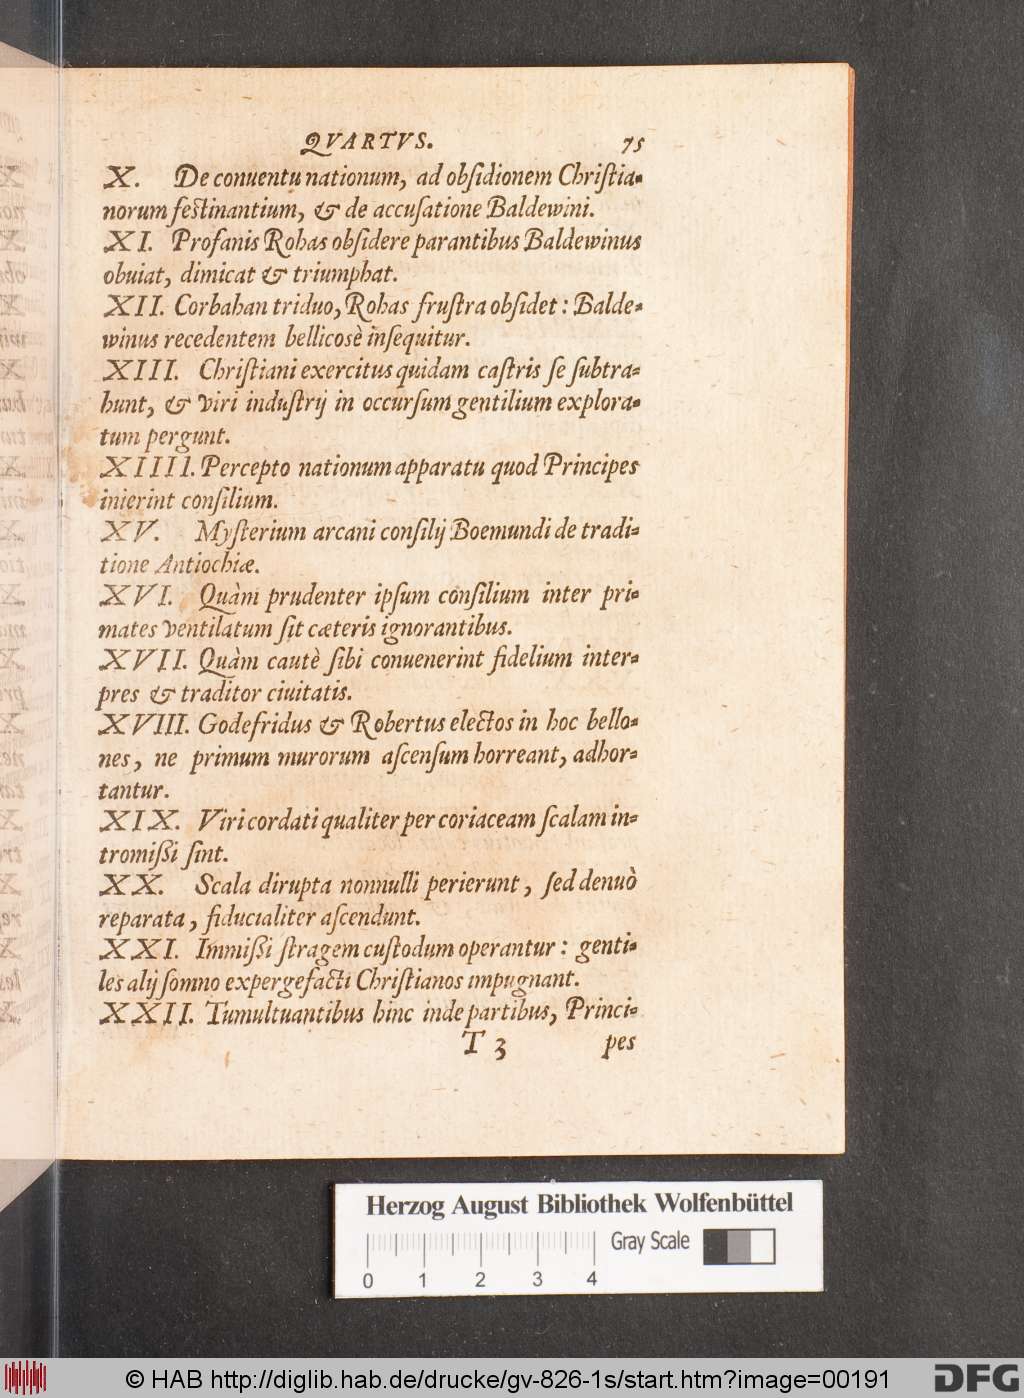 QVARTVS. 75
X. De conuentu nationum, ad obſidionem Chriſtia-
norum feſtinantium, & de accuſatione Baldewini.
XI. Profanis Rohas obſidere parantibus Baldewinus
obuiat, dimicat & triumphat.
XII. Corbahan triduo, Rohas fruſtra obſidet: Balde-
winus recedentem bellicosè inſequitur.
XIII. Chriſtiani exercitus quidam caſtris ſe ſubtra-
hunt, & viri induſtrij in occurſum gentilium explora-
tum pergunt.
XIIII. Percepto nationum apparatu quod Principes
inierint conſilium.
XV. Myſterium arcani conſilij Boemundi de tradi-
tione Antiochiæ.
XVI. Quàm prudenter ipſum conſilium inter pri-
mates ventilatum ſit cæteris ignorantibus.
XVII. Quàm cautè ſibi conuenerint fidelium inter-
pres & traditor ciuitatis.
XVIII. Godefridus & Robertus electos in hoc bello-
nes, ne primum murorum aſcenſum horreant, adhor-
tantur.
XIX. Viri cordati qualiter per coriaceam ſcalam in-
tromiſſi ſint.
XX. Scala dirupta nonnulli perierunt, ſed denuò
reparata, fiducialiter aſcendunt.
XXI. Immiſſi ſtragem cuſtodum operantur: genti-
les alij ſomno expergefacti Chriſtianos impugnant.
XXII. Tumultuantibus hinc inde partibus, Princi-
T 3 pes
Herzog August Bibliothek Wolfenbüttel
Gray Scale
0 1 2 3 4
© HAB http://diglib.hab.de/drucke/gv-826-1s/start.htm?image=00191
DFG